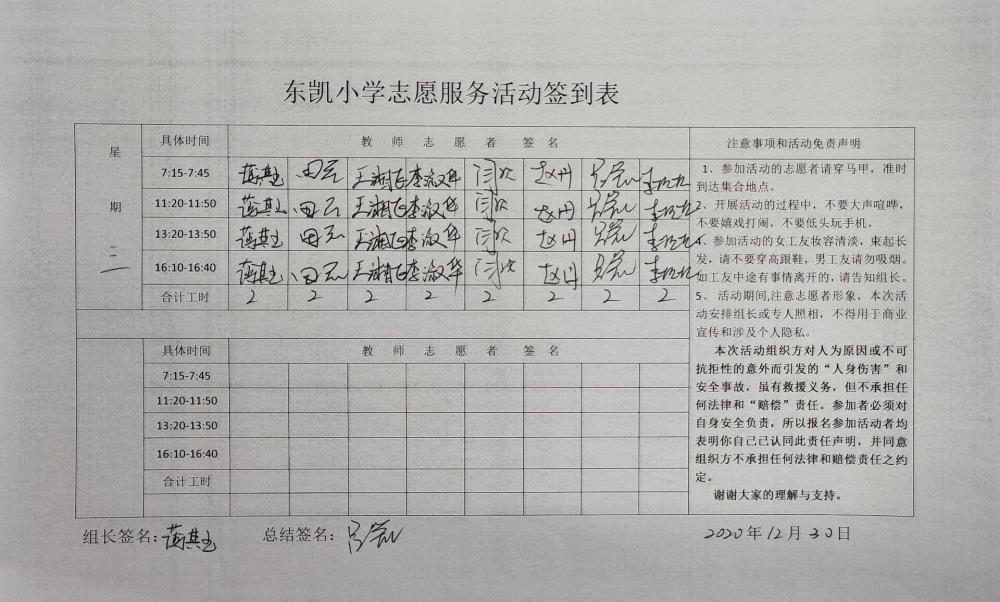 东凯小学志愿服务活动签到表
星期三
具体时间 教师志愿者签名
7:15-7:45 田云 王湘 李淑华 闫欢 赵丹
11:20-11:50 田云 王湘 李淑华 闫欢 赵丹
13:20-13:50 田云 王湘 李淑华 闫欢 赵丹
16:10-16:40 田云 王湘 李淑华 闫欢 赵丹
合计工时 2 2 2 2 2 2 2 2
具体时间 教师志愿者签名
7:15-7:45
11:20-11:50
13:20-13:50
16:10-16:40
合计工时
注意事项和活动免责声明
1、参加活动的志愿者请穿马甲，准时
到达集合地点。
2、开展活动的过程中，不要大声喧哗，
不要嬉戏打闹，不要低头玩手机。
、参加活动的女工友妆容清淡，束起长
发，请不要穿高跟鞋，男工友请勿吸烟。
如工友中途有事情离开的，请告知组长。
5、 活动期间,注意志愿者形象，本次活
动安排组长或专人照相，不得用于商业
宣传和涉及个人隐私。
本次活动组织方对人为原因或不可
抗拒性的意外而引发的“人身伤害”和
安全事故，虽有救援义务，但不承担任
何法律和“赔偿”责任。参加者必须对
自身安全负责，所以报名参加活动者均
表明你自己已认同此责任声明，并同意
组织方不承担任何法律和赔偿责任之约
定。
谢谢大家的理解与支持。
组长签名: 总结签名: 2020年12月30日